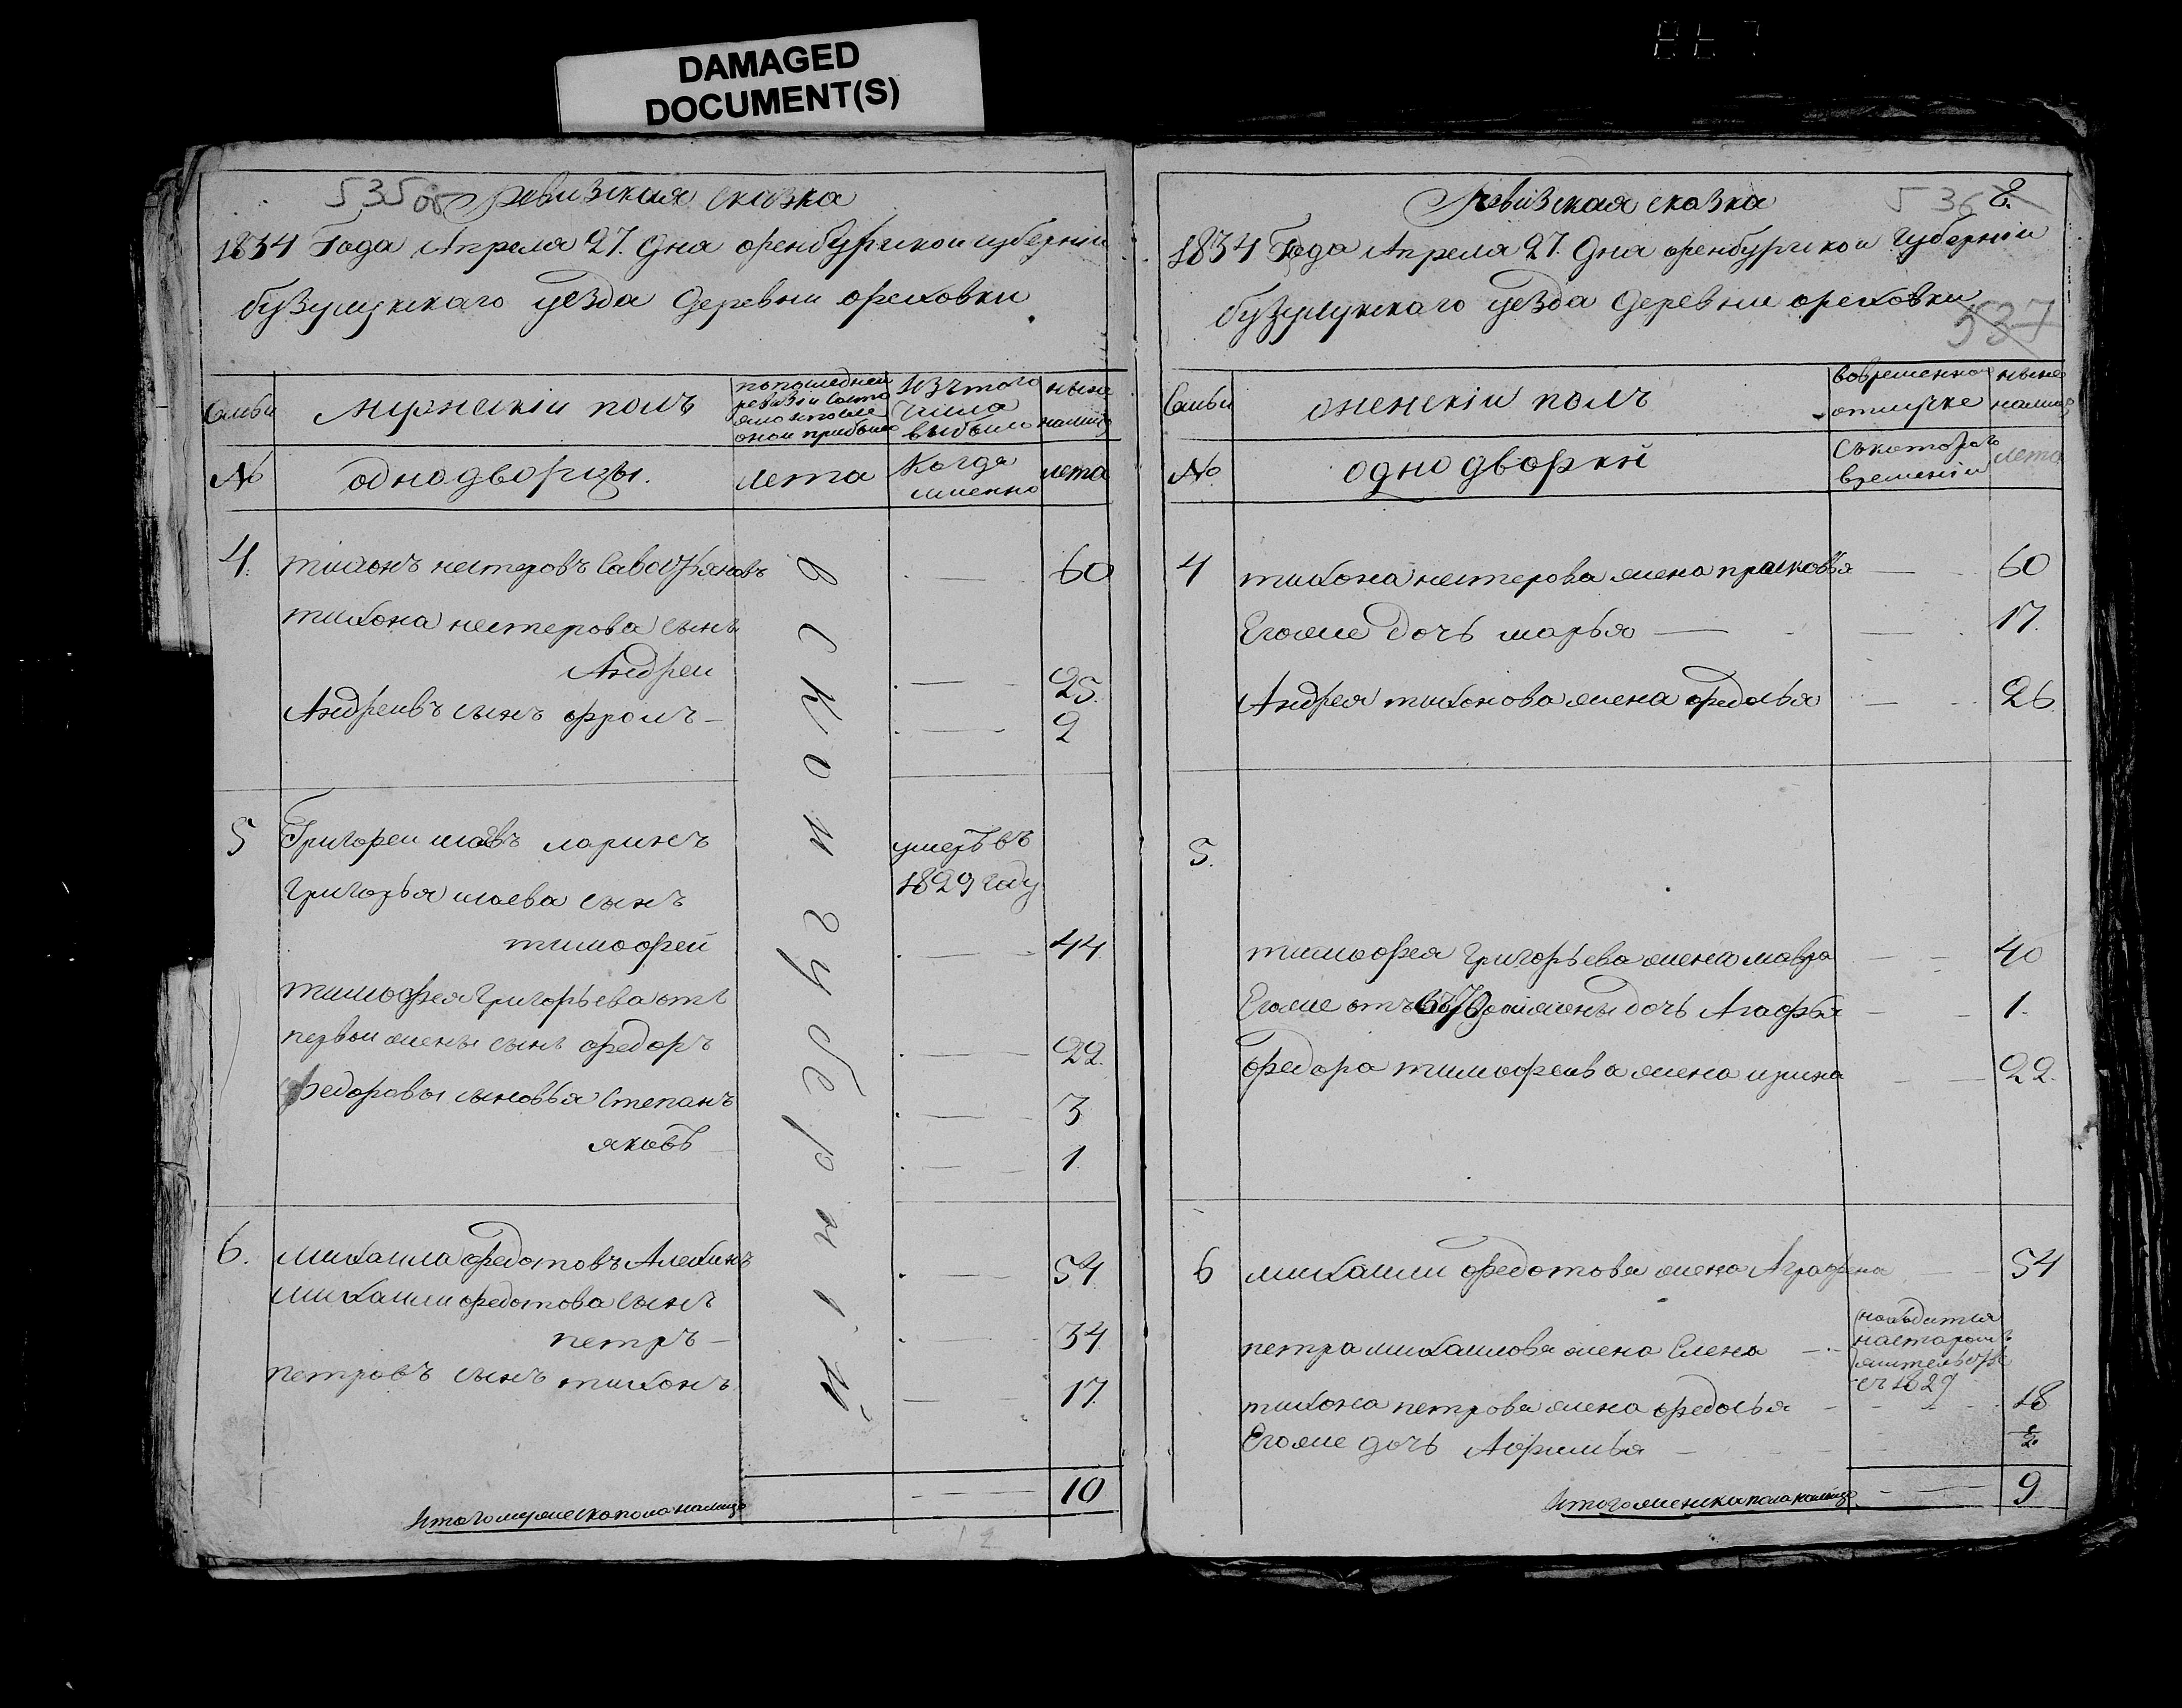 DAMAGED
DOCUMENT(S)
535 об
Ревизская сказка
1834 Года Апреля 27. Дня оренбургскои губернии
бузулукскаго уезда Деревни ореховки
Семьи
мужескіи полъ
по последнеи
ревизіи состо
яло и после
онои прибыло
Изъ того
числа
выбыло
ныне
налицо
№
однодворцы.
лета
Когда
именно
лета
4.
тихонъ нестеровъ Савостьяновъ
60
тихона нестерова сынъ
Андреи
25.
Андреивъ сынъ фролъ
2
5
Григореи ларинъ
умеръ въ
1829 году
Григорья сынъ
тимофей
44
тимофея Григорьева отъ
первои жены сынъ федоръ
22.
федоровы сыновья Степанъ
3
яковъ
1
6.
михаила федотовъ Алехинъ
54
михаили федотова сынъ
петръ
34
петровъ сынъ тихонъ
17.
Итого мужеска пола налицо
10
12
в скои губерніи
536
8.
Ревизская сказка
1834 Года Апреля 27. Дня оренбургскои Губерніи
бузулукскаго уезда Деревни ореховки
537
Семьи
женскіи полъ
вовременнои
отлучке
ныне
налицо
№
однодворки
Съкотораго
времений
лета
4
тихона нестерова жена прасковья
60
Егоже дочь марья
17.
Андрея тихонова жена федосья
26
5.
тимофея Григорьева жена мавра
40
Егоже отъ жены дочь Агафья
1.
федора тимофеива жена ирина
22.
6
михаили федотова жена Аграфена
54
петра михаилова жена Елена
находится
настаромъ
жительстве
съ 1829
тихона петрова жена федосья
18
Егоже дочь
2
Итого женска пола налицо
9